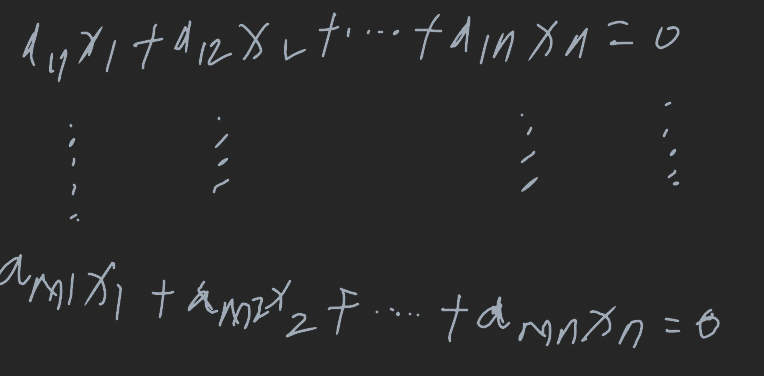 a₁₁x₁ + a₁₂x₂ + ⋯ + a₁ₙxₙ = 0
⋮ ⋮ ⋮ ⋮
aₘ₁x₁ + aₘ₂x₂ + ⋯ + aₘₙxₙ = 0